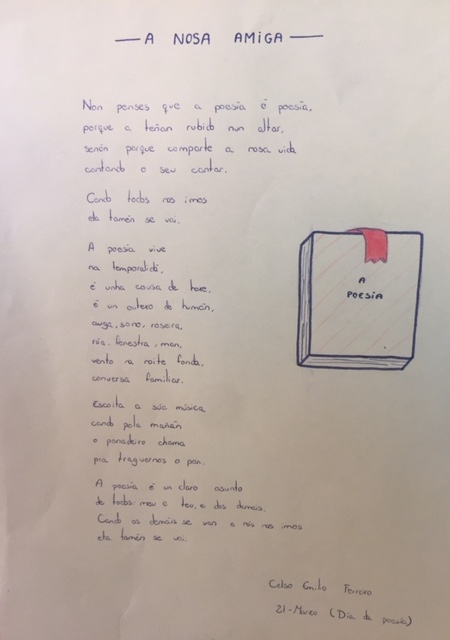 A NOSA AMIGA
Non penses que a poesía é poesía,
porque a teñan rubido nun altar,
senón porque comparte a nosa vida
contando o seu cantar.
Cando todos nos imos
ela tamén se vai.
A poesía vive
na temporalidá,
é unha cousa de hoxe,
é un outexo de humán,
auga, sono, roseira,
ría, fenestra, man,
vento na noite fonda,
conversa familiar.
Escoita a súa música
cando pola mañán
o panadeiro chama
pra traguernos o pan.
A poesía é un claro asunto
de todos: meu e teu, e dos demais.
Cando os demais se van e nós nos imos
ela tamén se vai.
A
POESÍA
Celso Emilio Ferreiro
21-Marzo (Día da poesía)